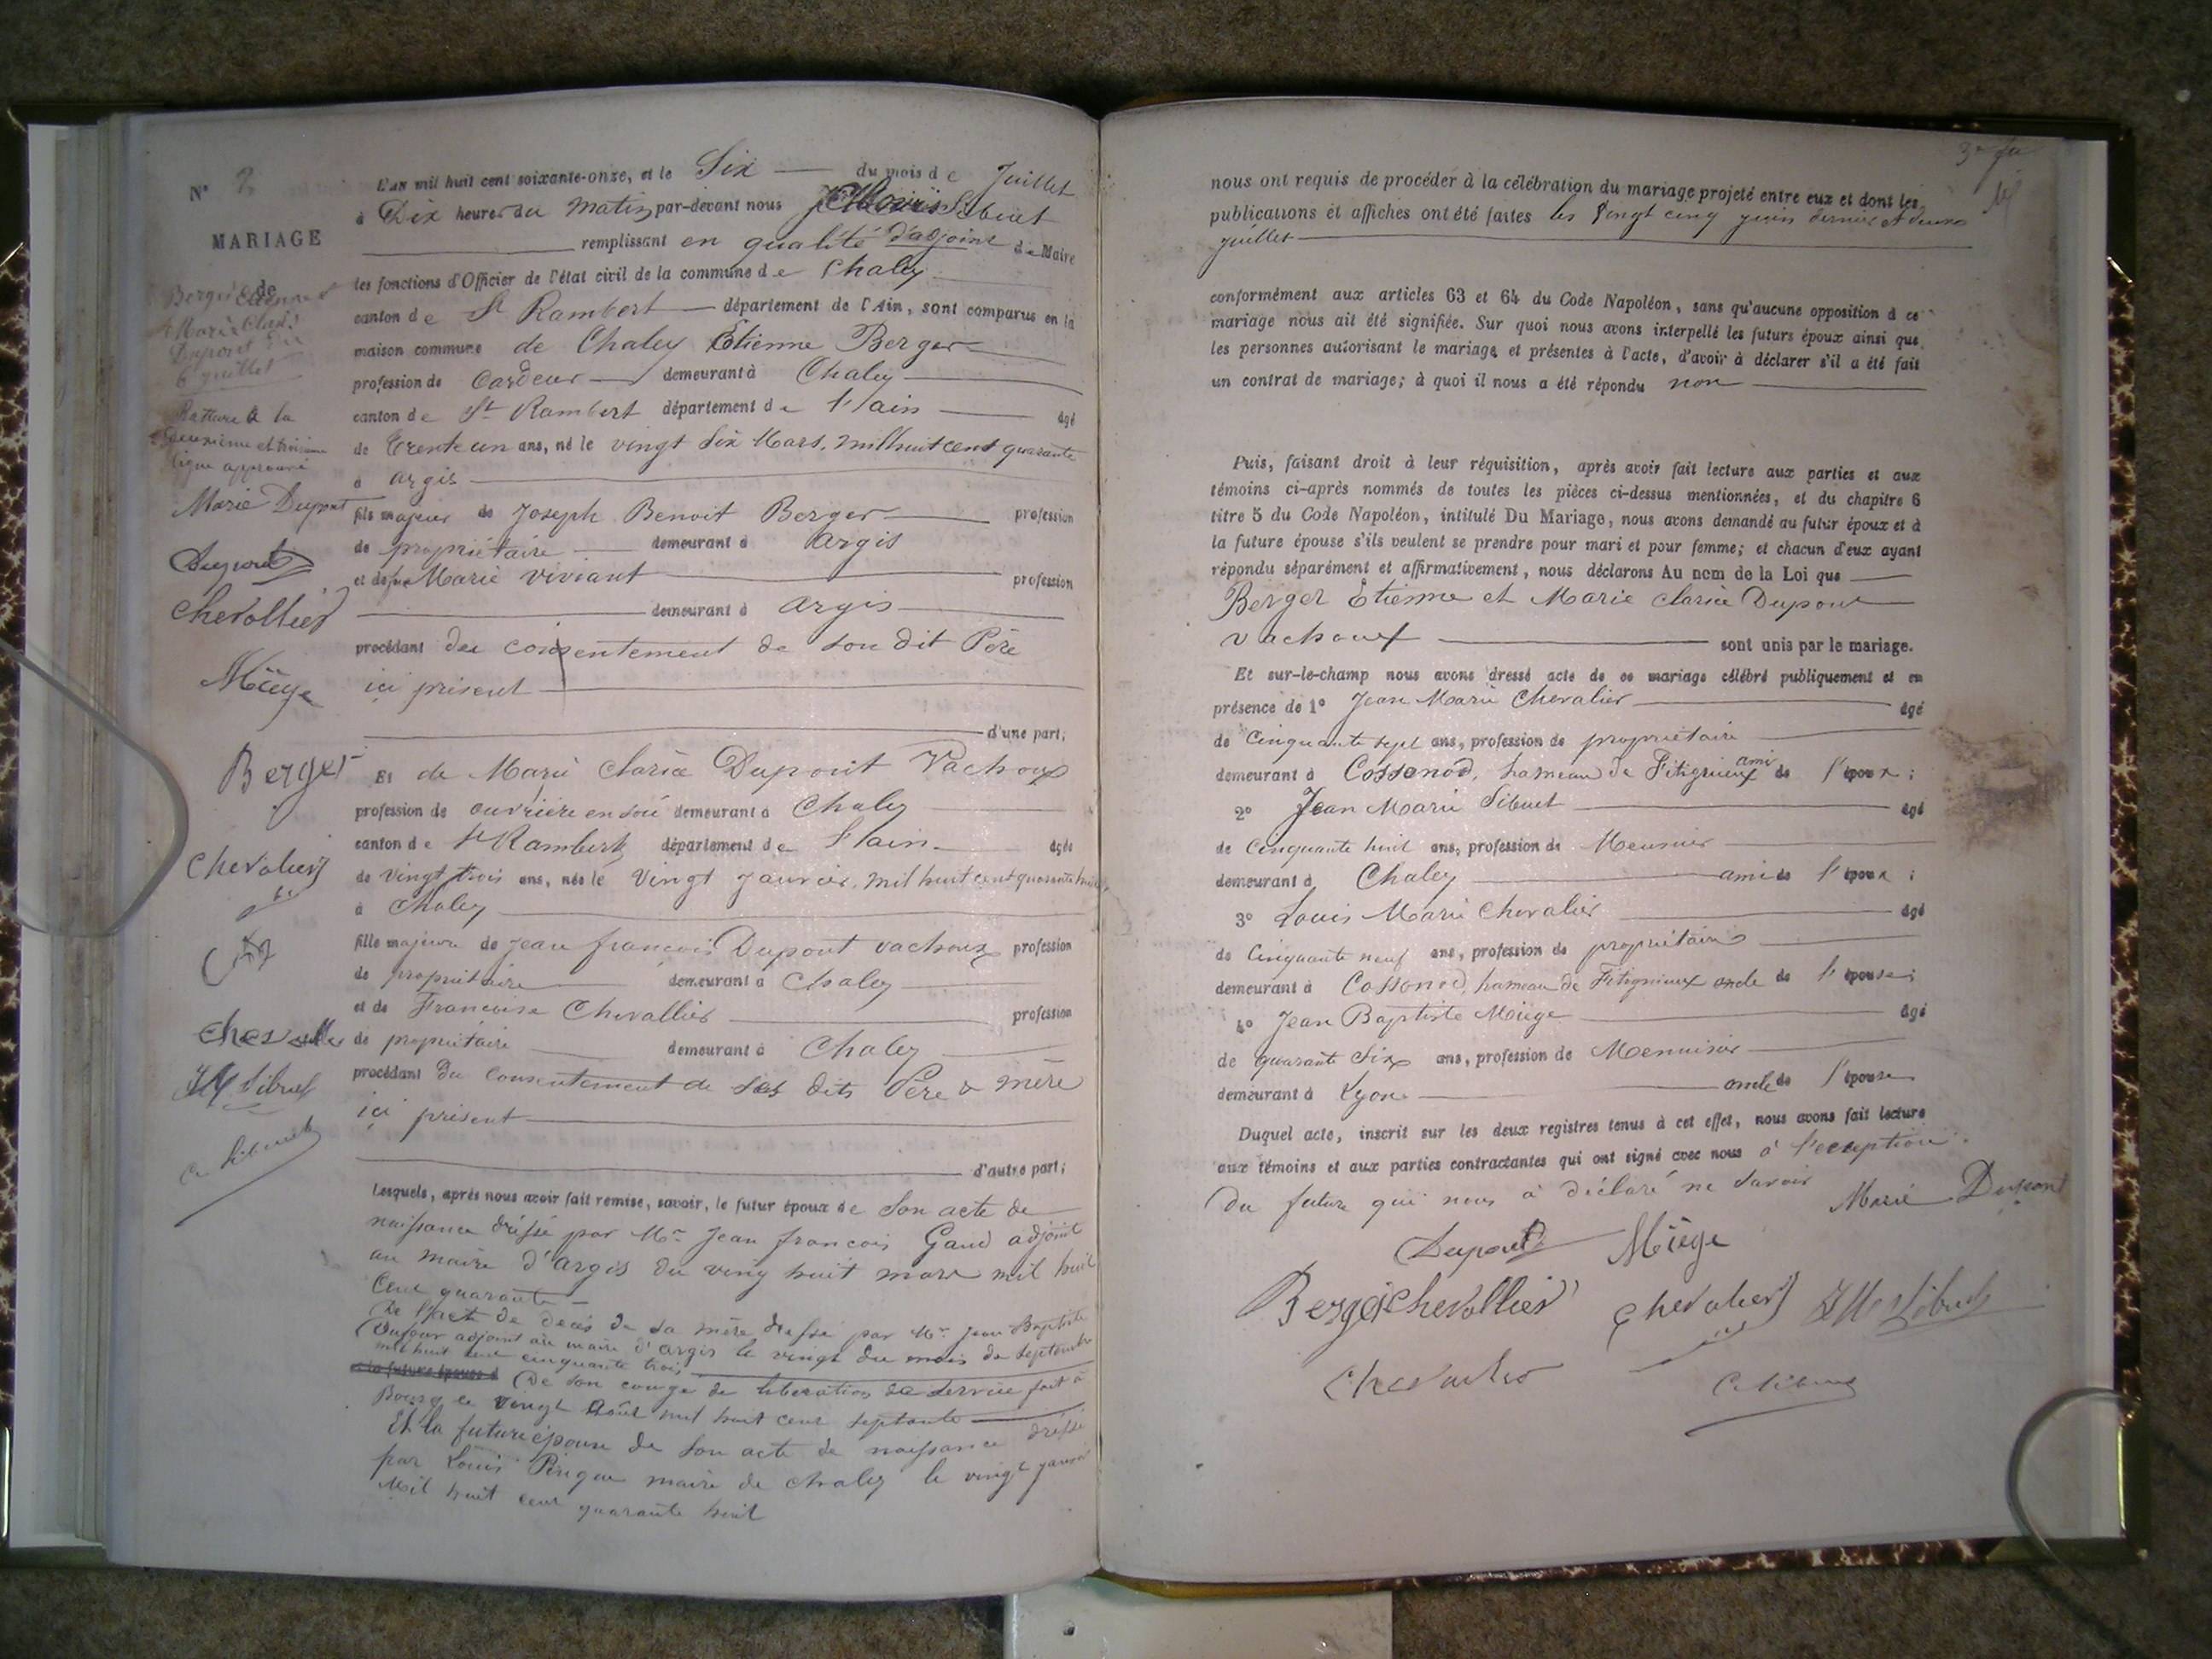 N° 2
MARIAGE
de
Berger Etienne et
Marie Claria
Dupont du
6 juillet
Rature à la
deuxième et troisième
ligne approuvé
Marie Dupont
Dupont
Chevollier
Miège
Berger
Chevalier
JM Sibuet
C Sibuet
L'an mil huit cent soixante-onze, et le Six du mois de Juillet
à Dix heures du matin par-devant nous Sibuet
remplissant en qualité d'adjoint de Maire
les fonctions d'Officier de l'état civil de la commune de Chaley
canton de St Rambert département de l'Ain, sont comparus en la
maison commune de Chaley Etienne Berger
profession de Cardeur demeurant à Chaley
canton de St Rambert département de l'ain âgé
de Trente un ans, né le vingt Six Mars, mil huit cent quarante
à argis
fils majeur de Joseph Benoit Berger profession
de propriétaire demeurant à Argis
et de feu Marie Viviant profession
demeurant à Argis
procédant du consentement de son dit Père
ici présent
d'une part;
Et de Marie Claria Dupont Vachoux
profession de ouvrière en soie demeurant à Chaley
canton de St Rambert département de l'ain âgée
de vingt trois ans, née le Vingt Janvier, mil huit cent quarante huit
à Chaley
fille majeure de Jean françois Dupont vachoux profession
de propriétaire demeurant à Chaley
et de Francoise Chevallier profession
de propriétaire demeurant à Chaley
procédant du Consentement de ses dits Père & mère
ici présent
d'autre part;
Lesquels, après nous avoir fait remise, savoir, le futur époux de Son acte de
naissance dréssé par Mr Jean françois Gaud adjoint
au maire d'argis du ving huit mars mil huit
Cent quarante
De l'acte de décès de sa mère dressé par Mr Jean Baptiste
Dufour adjoint au maire d'argis le vingt du mois de Septembre
mil huit cent cinquante trois
la future épouse d De son congé de libération de service fait à
Bourg le vingt Août mil huit cent septante
Et la future épouse de son acte de naissance dréssé
par Louis maire de chaley le vingt janvier
Mil huit cent quarante huit
nous ont requis de procéder à la célébration du mariage projeté entre eux et dont les
publications et affiches ont été faites les Vingt cinq juin dernier et deux
juillet
conformément aux articles 63 et 64 du Code Napoléon, sans qu'aucune opposition à ce
mariage nous ait été signifiée. Sur quoi nous avons interpellé les futurs époux ainsi que
les personnes autorisant le mariage et présentes à l'acte, d'avoir à déclarer s'il a été fait
un contrat de mariage; à quoi il nous a été répondu non
Puis, faisant droit à leur réquisition, après avoir fait lecture aux parties et aux
témoins ci-après nommés de toutes les pièces ci-dessus mentionnées, et du chapitre 6
titre 5 du Code Napoléon, intitulé Du Mariage, nous avons demandé au futur époux et à
la future épouse s'ils veulent se prendre pour mari et pour femme; et chacun d'eux ayant
répondu séparément et affirmativement, nous déclarons Au nom de la Loi que
Berger Etienne et Marie Claria Dupont
vachoux sont unis par le mariage.
Et sur-le-champ nous avons dressé acte de ce mariage célébré publiquement et en
présence de 1° Jean Marie Chevalier âgé
de Cinquante sept ans, profession de propriétaire
demeurant à Cossonod, hameau de Fitignieux ami de l'époux;
2° Jean Marie Sibuet âgé
de Cinquante huit ans, profession de Meunier
demeurant à Chaley ami de l'époux;
3° Louis Marie Chevalier âgé
de Cinquante neuf ans, profession de propriétaire
demeurant à Cossonod, hameau de Fitignieux oncle de l'épouse;
4° Jean Baptiste Miège âgé
de quarante Six ans, profession de Menuisier
demeurant à Lyon oncle de l'épouse
Duquel acte, inscrit sur les deux registres tenus à cet effet, nous avons fait lecture
aux témoins et aux parties contractantes qui ont signé avec nous à l'exception
du future qui nous à déclaré ne savoir Marie Dupont
Dupont Miège
Berger Chevollier Chevalier JM Sibuet
C Sibuet